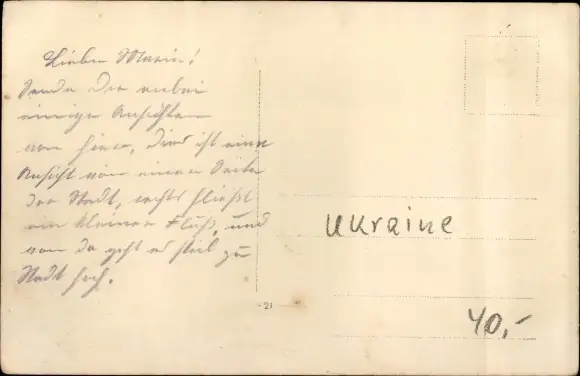 Lieber Marin!
Sende Dir anbei
einige Ansichten
von hier, dies ist eine
Ansicht von einer Seite
der Stadt, rechts fließt
ein kleiner Fluß, und
von da geht es steil zu
Stadt hoch.
Ukraine
21
40,-